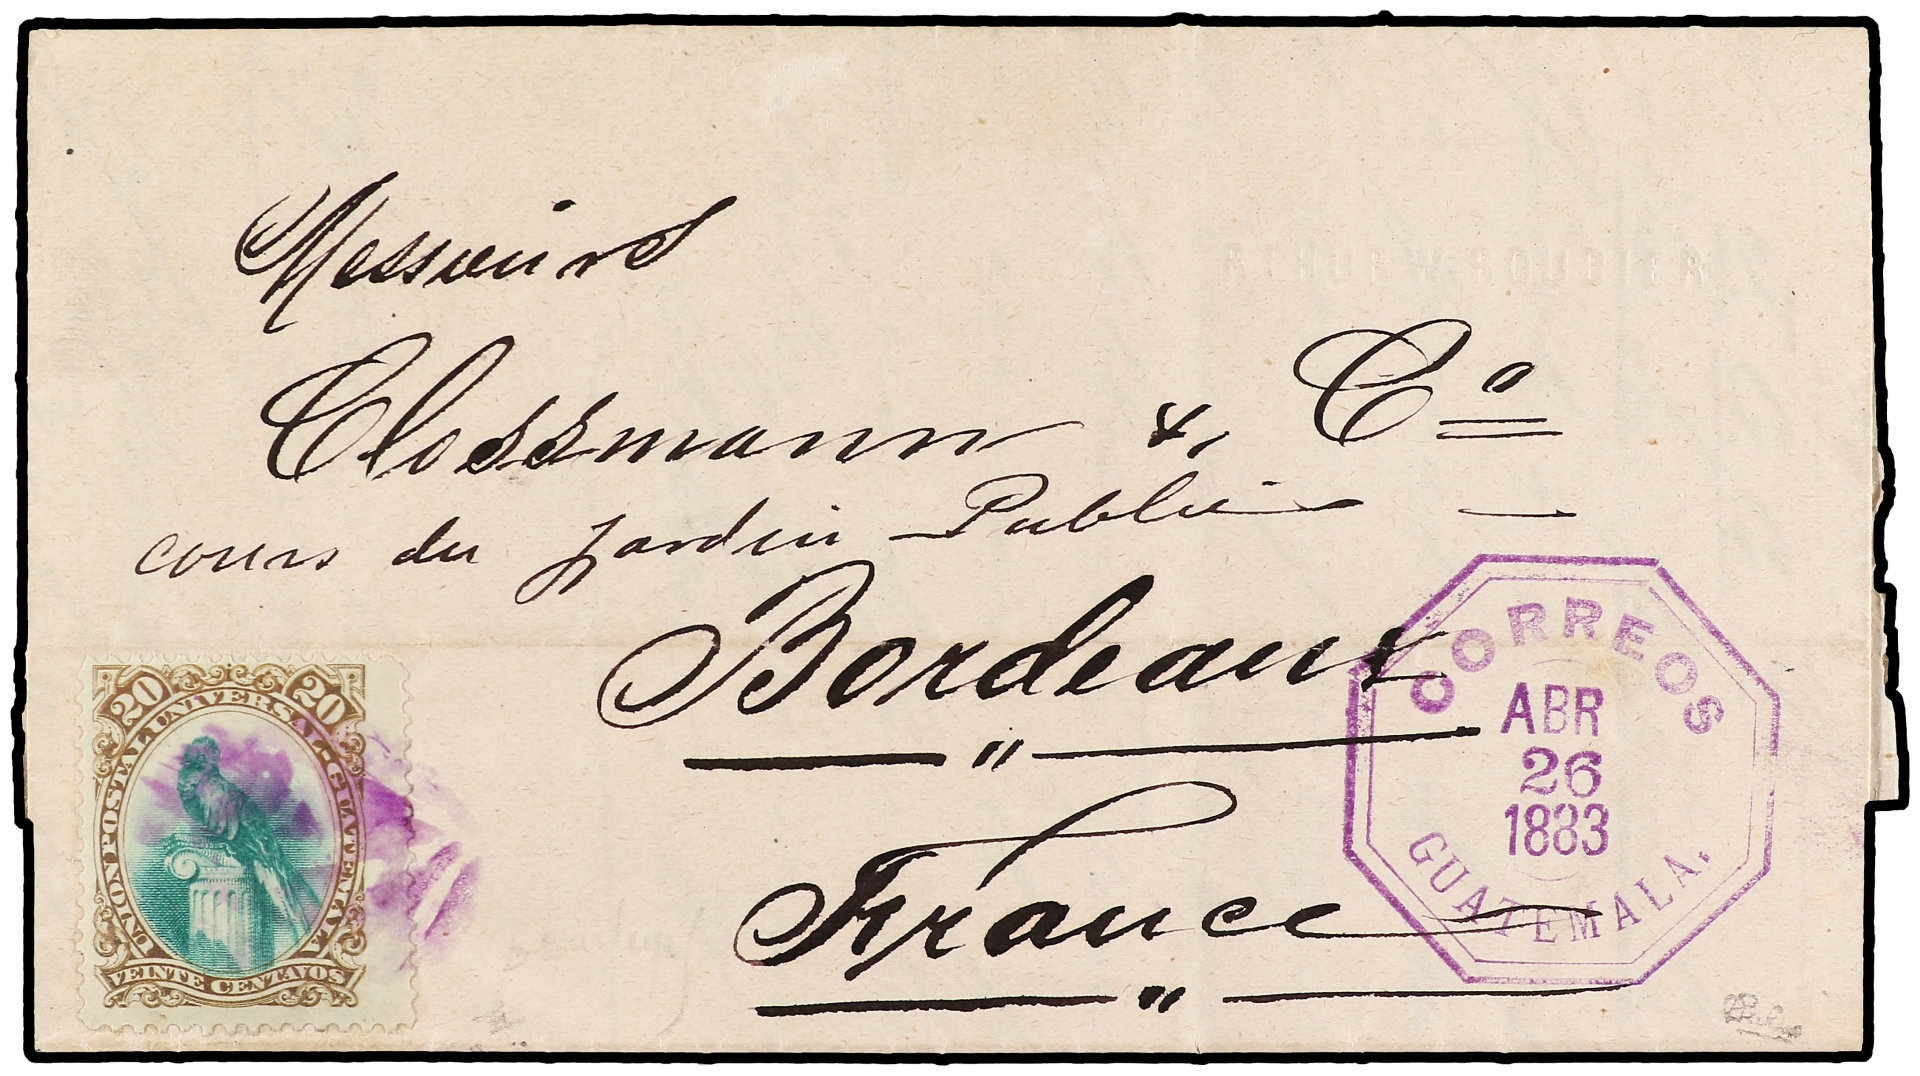 RTHUR W. ROUGIER
Messieurs
Clossmann &, Cº
cours du Jardin Public —
Bordeaux
"
France
"
20 20
UNION POSTAL UNIVERSAL GUATEMALA
VEINTE CENTAVOS
CORREOS
ABR
26
1883
GUATEMALA.